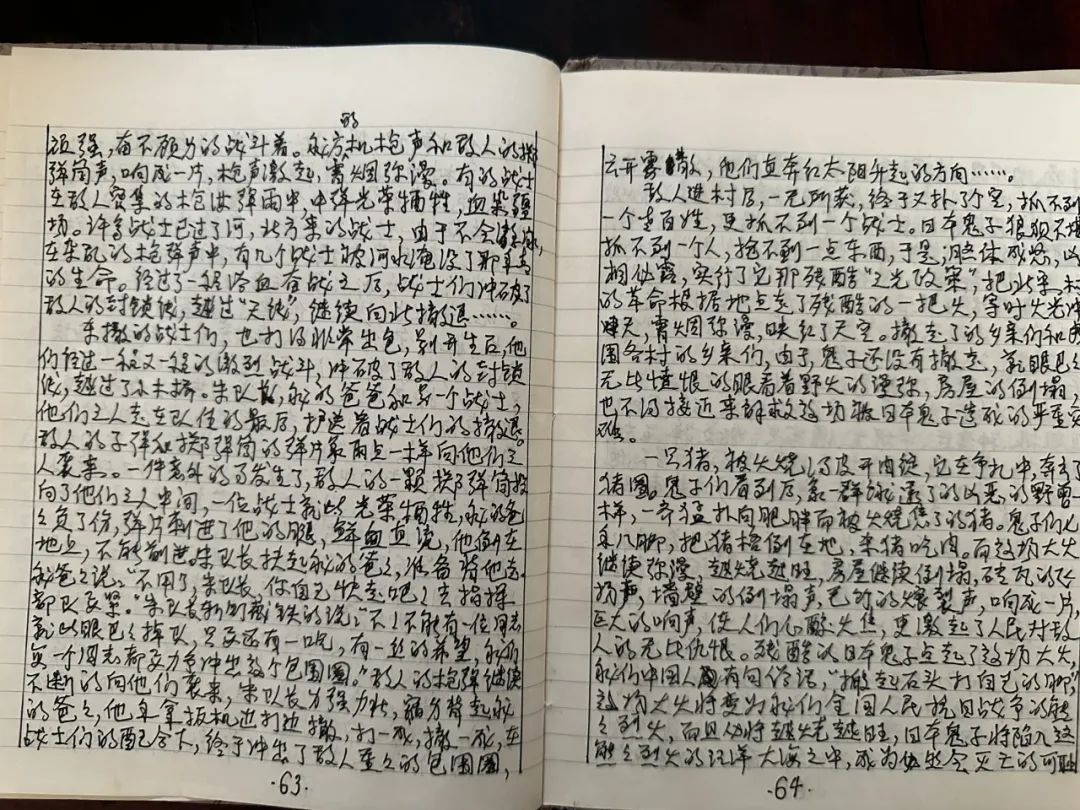 的
顽强,奋不顾身的战斗着。我方机枪声和敌人的掷
弹筒声,响成一片,枪声激起,霄烟弥漫。有的战士
在敌人密集的枪林弹雨中,中弹光荣牺牲,血染疆
场。许多战士已过了河,北方来的战士,由于不会
在杂乱的枪弹声中,有几个战士被河水淹没了那
的生命。经过了一段浴血奋战之后,战士们冲破了
敌人的封锁线,越过“天线”,继续向北撤退……。
东撤的战士们,也打的非常出色,别开生后,他
们经过一程又一程的激烈战斗,冲破了敌人的封锁
线,越过了小木桥。朱队长,我的爸爸和另一个战士,
他们三人走在队伍的最后,护送着战士们的撤退。
敌人的子弹和掷弹筒的弹片象雨点一样向他们三
人袭来。一件意外的事发生了,敌人的一颗掷弹筒投
向了他们三人中间,一位战士就此光荣牺牲,我的爸
爸负了伤,弹片刺进了他的腿,鲜血直流,他倒在
地上,不能前进。朱队长扶起我的爸爸,准备将他
我爸爸说:“不用了,朱队长,你自己快走吧!去指挥
部队要紧。”朱队长斩钉截铁的说:“不!不能有一位同志
就此眼巴巴掉队,只要还有一口气,有一丝的希望,我们
每一个同志都要力争冲出这个包围圈。”敌人的枪弹继续
不断的向他们袭来,朱队长力强力壮,背起我
的爸爸,他手拿扳机边打边撤,打一成,撤一成,在
战士们的配合下,终于冲出了敌人重重的包围圈,
·63·
云开雾散,他们直奔红太阳升起的方向……。
敌人进村后,一无所获,终于又扑了个空,抓不到
一个老百姓,更抓不到一个战士。日本鬼子狼狈不堪
抓不到一个人,抢不到一点东西,于是,恼休成怒,凶
相仙露,实行了它那残酷“三光政策”,把北宋村
的革命根据地点走了残酷的一把火,霎时火光冲
天,霄烟弥漫,映红了天空。撤走了的乡亲们和周
围各村的乡亲们,由于鬼子还没有撤走,就眼巴巴
无比愤恨的眼看着野火的漫弥,房屋的倒塌,
也不得接近来解救这场被日本鬼子造成的严重灾
难。
一只猪,被火烧得皮开肉绽,它在争扎中,奔去了
猪圈。鬼子们看到后,象一群饿透了的凶恶的野兽一
样,一齐猛扑向肥胖而被火烧焦了的猪。鬼子们七
手八脚,把猪搭倒在地,杀猪吃肉。而这场大火
继续弥漫,越烧越旺,房屋继续倒塌,砖瓦的飞
扬声,墙壁的倒塌声,毛竹的爆裂声,响成一片,
巨大的响声,使人们心酸火焦,更激起了人民对敌
人的无比仇恨。残酷的日本鬼子点起了这场大火,
我们中国人有句俗语,“搬起石头打自己的脚”,
这场大火将变为我们全国人民抗日战争的熊
熊烈火,而且仍将越烧越旺,日本鬼子将陷入这
熊熊烈火的汪洋大海之中,成为灭亡的可耻
·64·